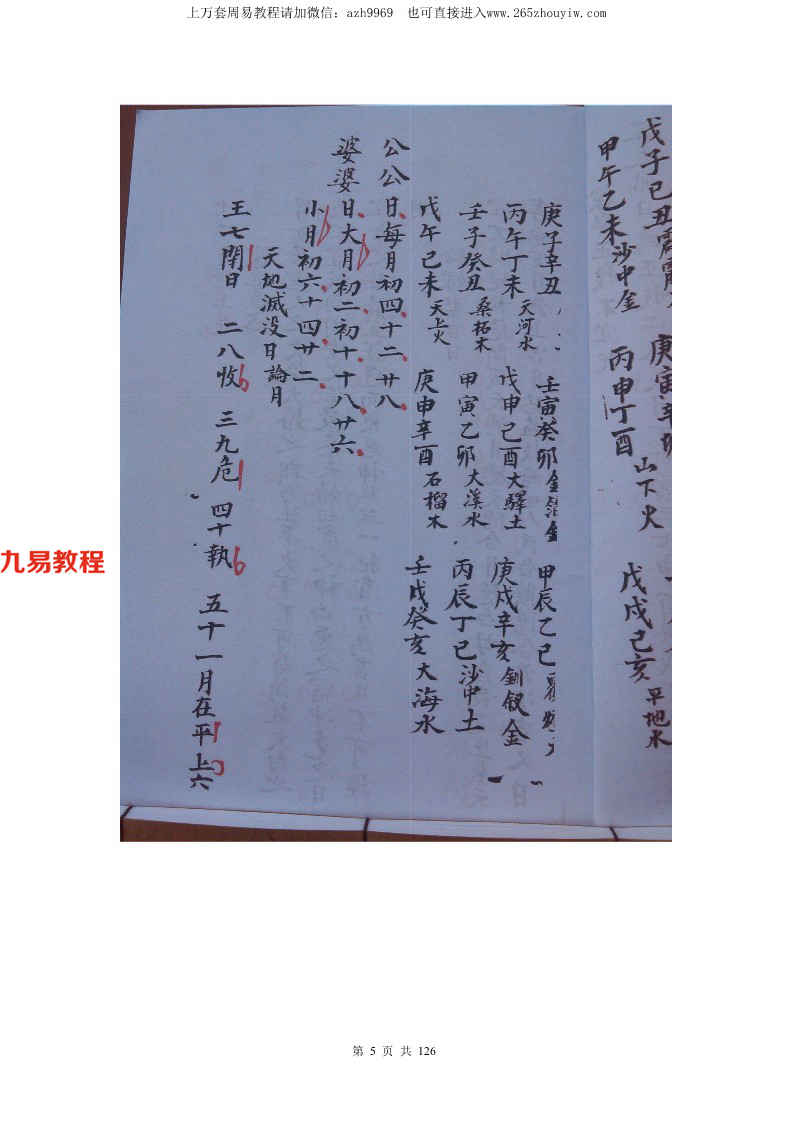 上万套周易教程请加微信：azh9969 也可直接进入www.265zhouyiw.com
戊子己丑霹靂
庚寅辛
戊戌己亥 平地水
甲午乙未沙中金
丙申丁酉 山下火
庚子辛丑
壬寅癸卯金箔金
甲辰乙巳
丙午丁未 天河水
戊申己酉大驛土
庚戌辛亥釧釵金
壬子癸丑 桑拓木
甲寅乙卯大溪水
丙辰丁巳沙中土
戊午己未 天上火
庚申辛酉石榴木
壬戌癸亥大海水
公公日每月初四十二廿八
婆婆日大月初二初十十八廿六
小月初六十四廿二
天地滅没日論月
王七閉日 二八收 三九危 四十執 五十一月在平 上六
九易教程
第 5 页 共 126